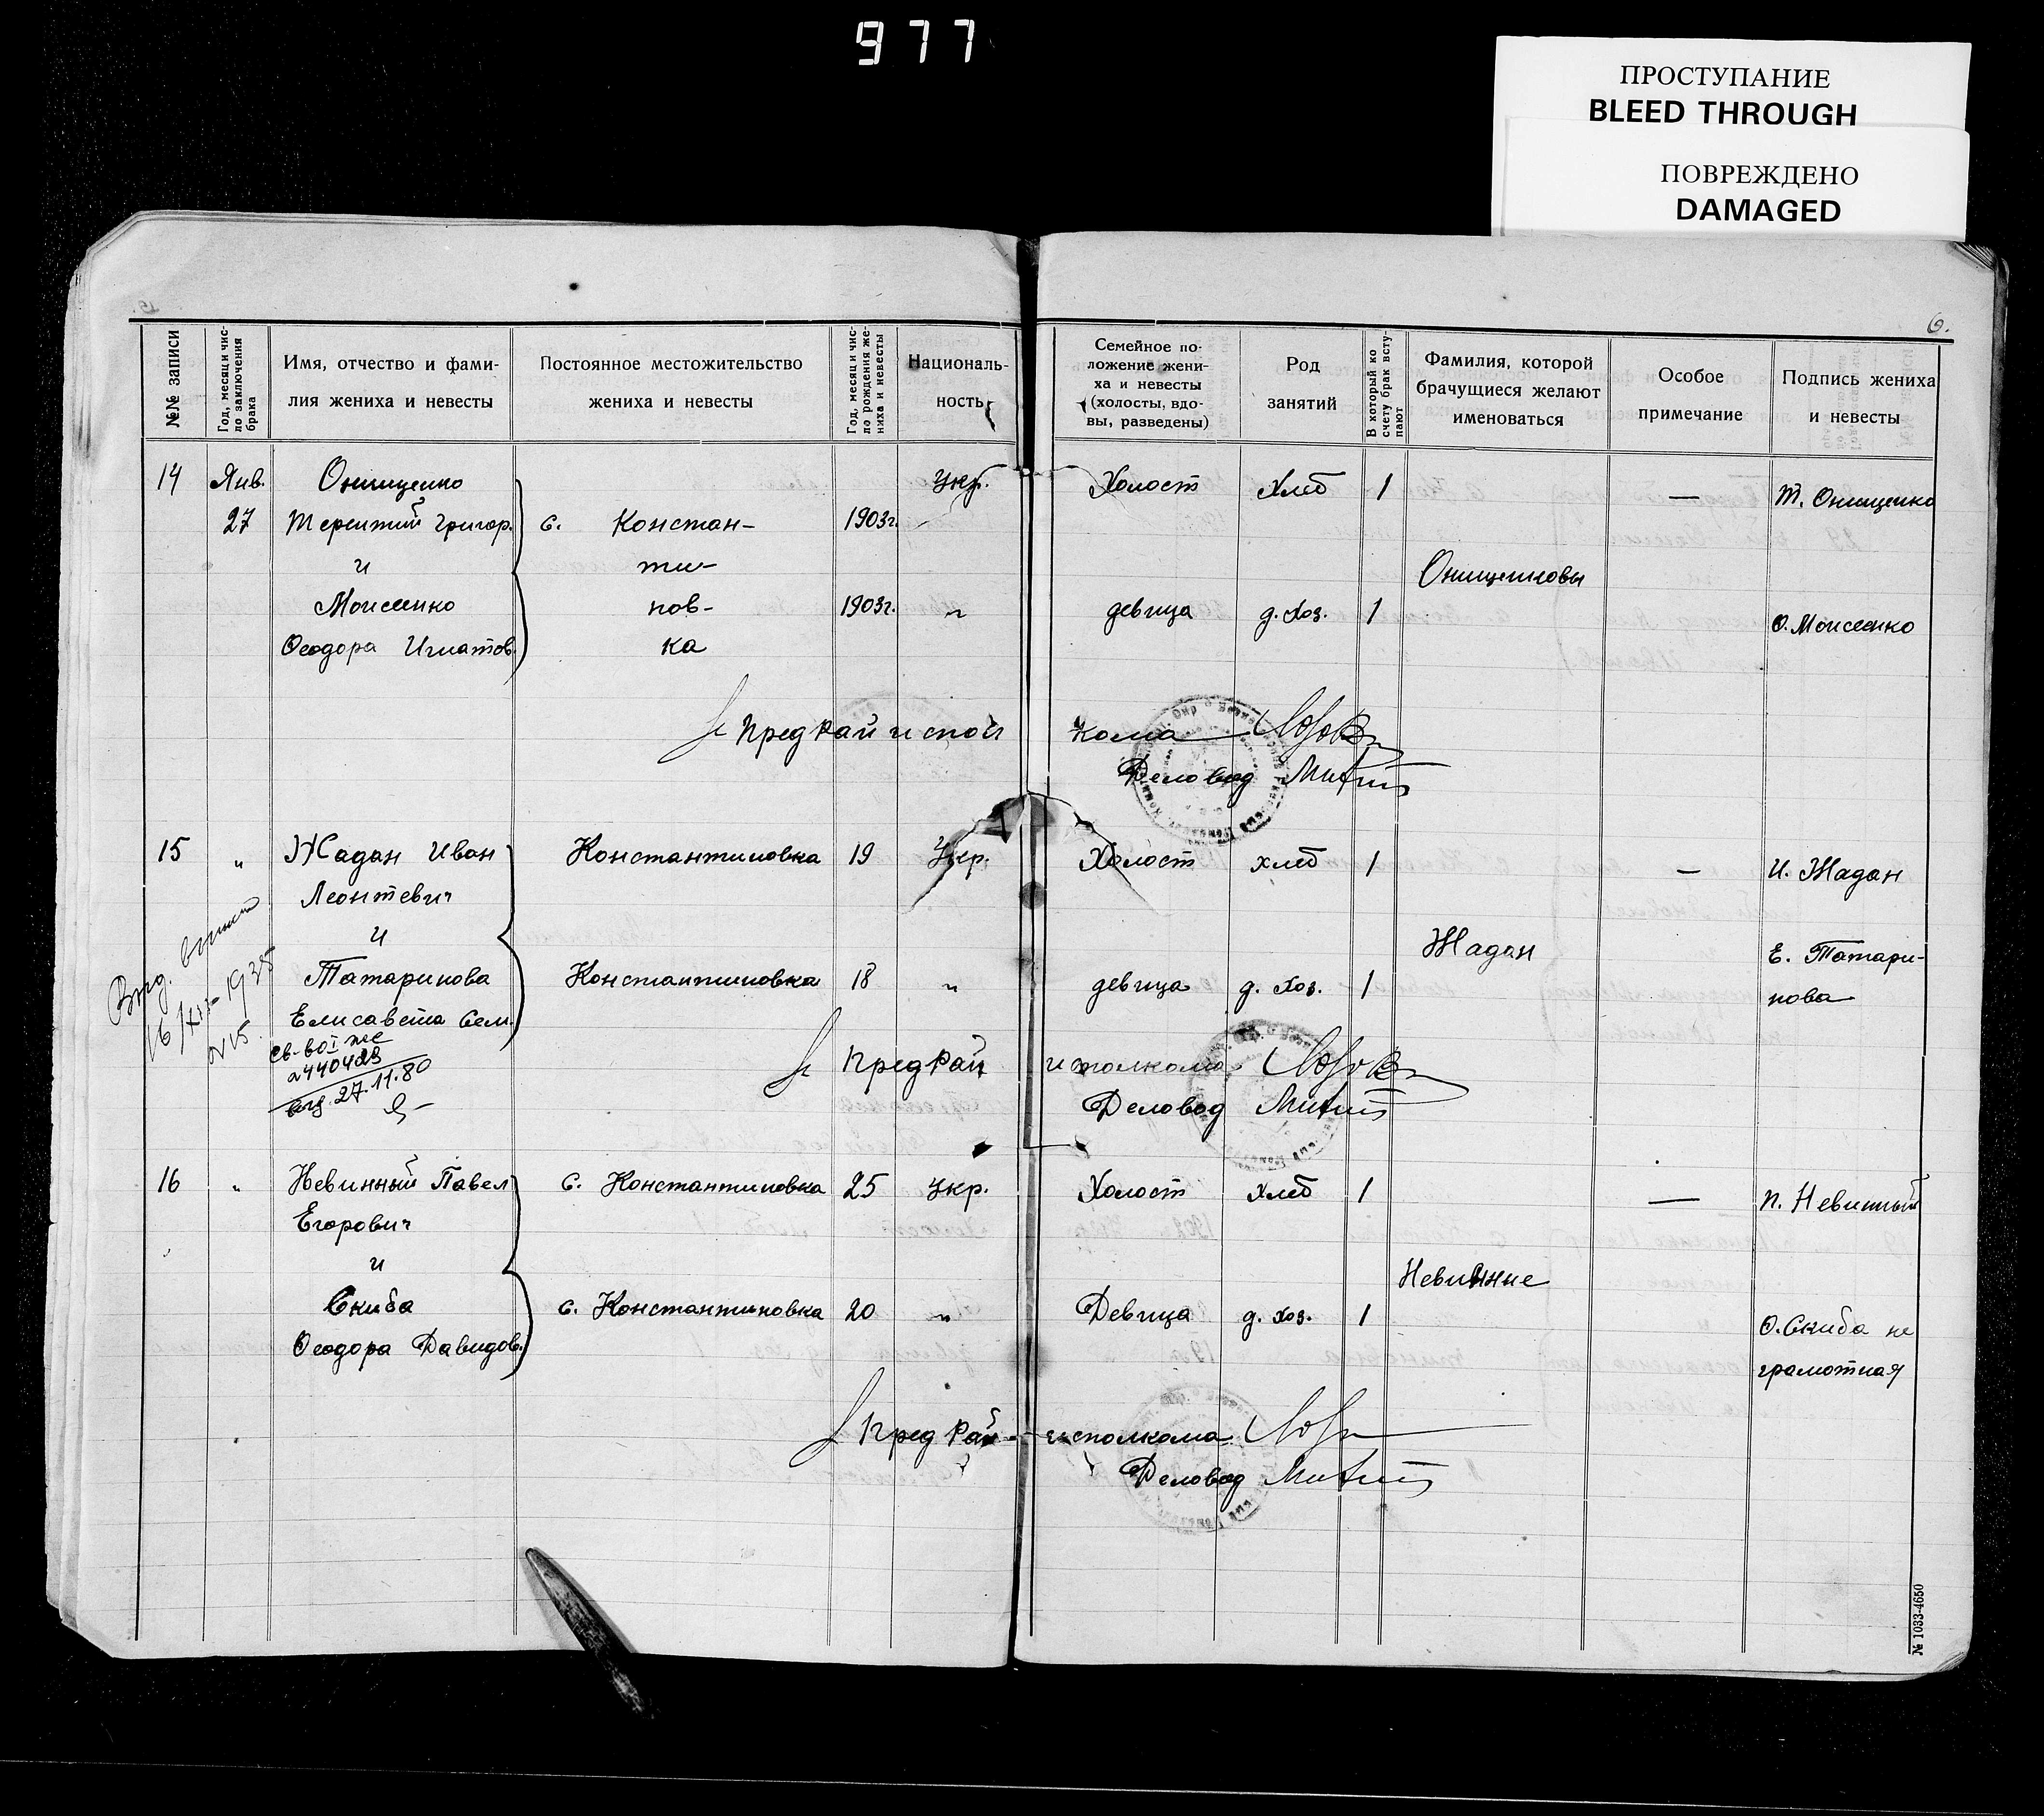 977
ПРОСТУПАНИЕ
BLEED THROUGH
ПОВРЕЖДЕНО
DAMAGED
6.
№№ записи
Год, месяц и чис-
ло заключения
брака
Имя, отчество и фами-
лия жениха и невесты
Постоянное местожительство
жениха и невесты
Год, месяц и чис-
ло рождения же-
ниха и невесты
Националь-
ность
Семейное по-
ложение жени-
ха и невесты
(холосты, вдо-
вы, разведены)
Род
занятий
В который ко
счету брак всту-
пают
Фамилия, которой
брачущиеся желают
именоваться
Особое
примечание
Подпись жениха
и невесты
14 Янв. Онищенко Укр. Холост Хлеб 1 — Т. Онищенко
27 Терентий Григор. с. Констан- 1903г.
и ти- Онищенковы
Моисеенко нов- 1903г. " девица д. хоз. 1 О. Моисеенко
Феодора Игнатов. ка
Пред Рай испол кома
Деловод
15 " Жадан Иван Константиновка 19 Укр. Холост хлеб 1 — И. Жадан
Леонтевич
и Жадан
Татаринова Константиновка 18 " девица д. хоз. 1 Е. Татари-
нова
Елисавета Сем.
16/XII-1935
№15.
св-во I же
2440423
выд. 27.11.80
Пред Рай исполкома
Деловод
16 " Невинный Павел с. Константиновка 25 Укр. Холост хлеб 1 — П. Невинный
Егорович
и Невинные
Скиба с. Константиновка 20 " Девица д. хоз. 1 О. Скиба не
грамотная
Феодора Давидов.
Пред Рай- исполкома
Деловод
№ 1033-4650